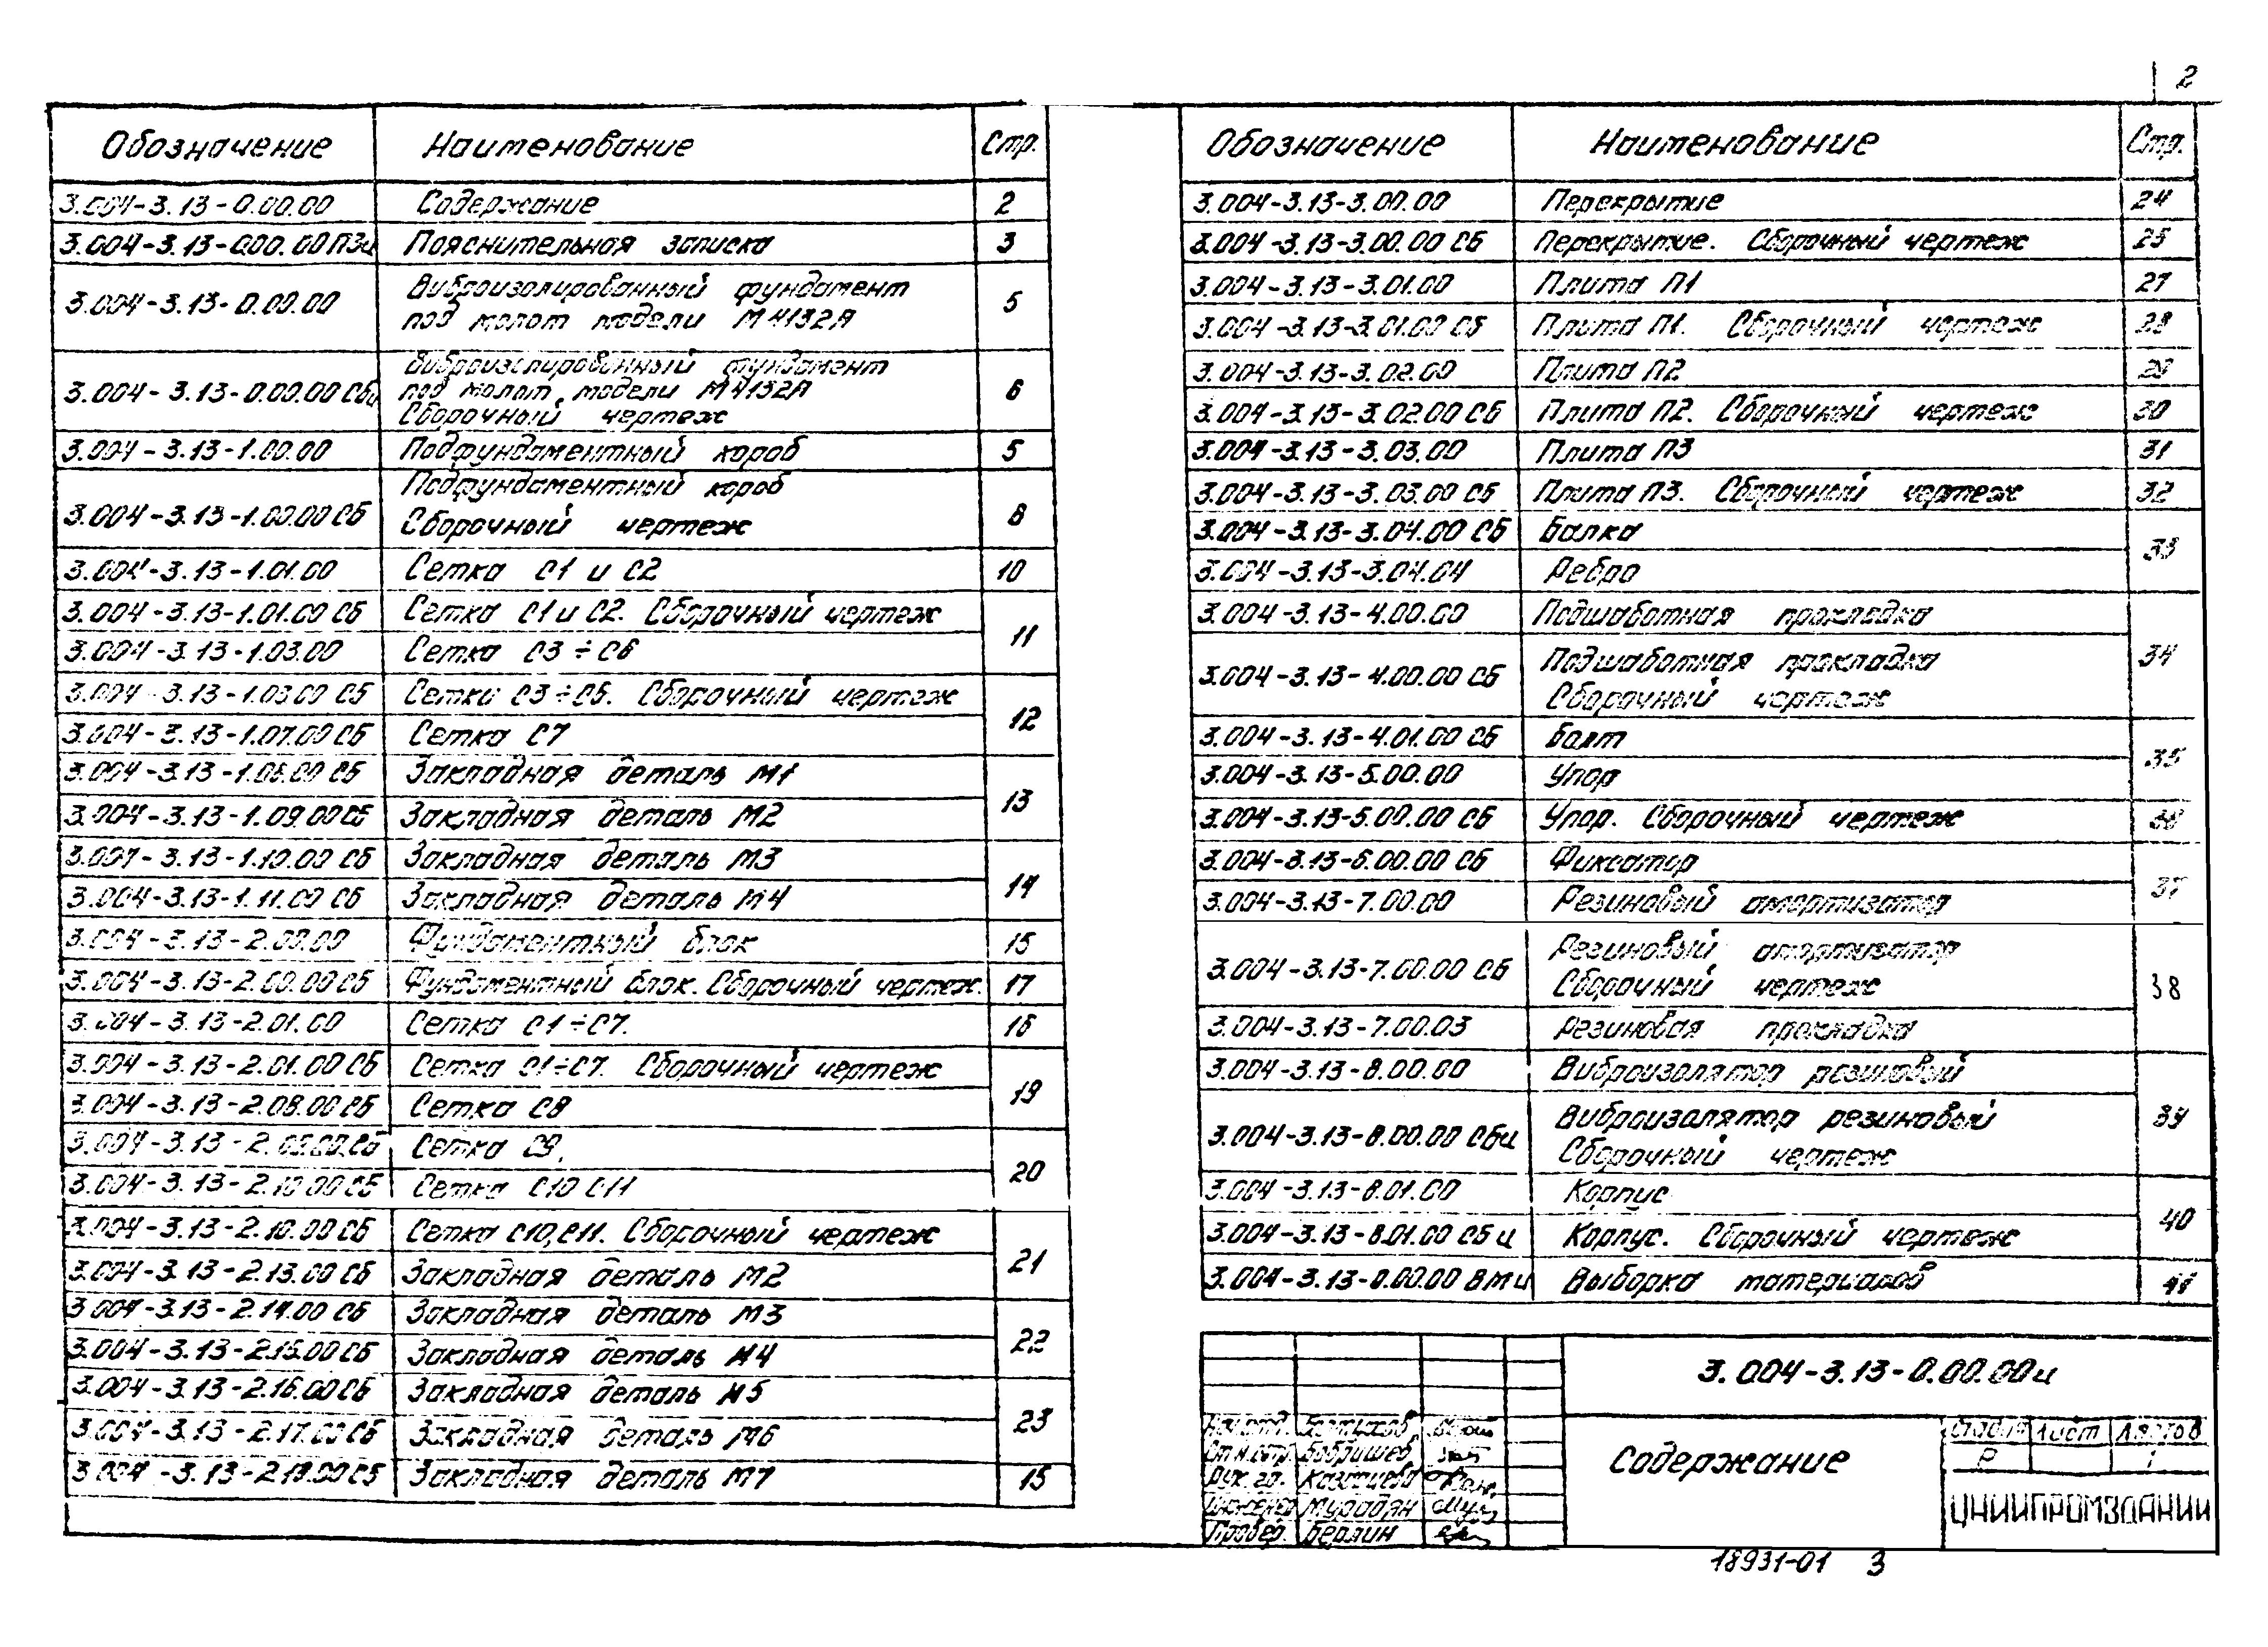 2
Обозначение Наименование Стр.
3.004-3.13-0.00.00 Содержание 2
3.004-3.13-0.00.00ПЗи Пояснительная записка 3
3.004-3.13-0.00.00 Виброизолированный фундамент
под молот модели М4132А 5
Виброизолированный фундамент
3.004-3.13-0.00.00 Сби под молот модели М4132А 6
Сборочный чертеж
3.004-3.13-1.00.00 Подфундаментный короб 5
Подфундаментный короб
3.004-3.13-1.00.00 Сб Сборочный чертеж 8
3.004-3.13-1.01.00 Сетка С1 и С2 10
3.004-3.13-1.01.00 Сб Сетка С1 и С2. Сборочный чертеж 11
3.004-3.13-1.03.00 Сетка С3÷С6
3.004-3.13-1.03.00 Сб Сетки С3÷С6. Сборочный чертеж 12
3.004-3.13-1.07.00 Сб Сетка С7
3.004-3.13-1.08.00 Сб Закладная деталь М1 13
3.004-3.13-1.09.00 Сб Закладная деталь М2
3.004-3.13-1.10.00 Сб Закладная деталь М3 14
3.004-3.13-1.11.00 Сб Закладная деталь М4
3.004-3.13-2.00.00 Фундаментный блок 15
3.004-3.13-2.00.00 Сб Фундаментный блок. Сборочный чертеж. 17
3.004-3.13-2.01.00 Сетка С1÷С7. 16
3.004-3.13-2.01.00 Сб Сетка С1÷С7. Сборочный чертеж 19
3.004-3.13-2.08.00 Сб Сетка С8
3.004-3.13-2.09.00.Сб Сетка С9. 20
3.004-3.13-2.10.00 Сб Сетка С10 С11
3.004-3.13-2.10.00 Сб Сетка С10, С11. Сборочный чертеж 21
3.004-3.13-2.13.00 Сб Закладная деталь М2
3.004-3.13-2.14.00 Сб Закладная деталь М3 22
3.004-3.13-2.15.00 Сб Закладная деталь М4
3.004-3.13-2.16.00 Сб Закладная деталь М5 23
3.004-3.13-2.17.00 Сб Закладная деталь М6
3.004-3.13-2.18.00 Сб Закладная деталь М7 15
Обозначение Наименование Стр.
3.004-3.13-3.00.00 Перекрытие 24
3.004-3.13-3.00.00 Сб Перекрытие. Сборочный чертеж 25
3.004-3.13-3.01.00 Плита П1 27
3.004-3.13-3.01.00 Сб Плита П1. Сборочный чертеж 28
3.004-3.13-3.02.00 Плита П2 29
3.004-3.13-3.02.00 Сб Плита П2. Сборочный чертеж 30
3.004-3.13-3.03.00 Плита П3 31
3.004-3.13-3.03.00 Сб Плита П3. Сборочный чертеж 32
3.004-3.13-3.04.00 Сб Балка 33
3.004-3.13-3.04.04 Ребро
3.004-3.13-4.00.00 Подшаботная прокладка 34
3.004-3.13-4.00.00 Сб Подшаботная прокладка
Сборочный чертеж
3.004-3.13-4.01.00 Сб Болт 35
3.004-3.13-5.00.00 Упор
3.004-3.13-5.00.00 Сб Упор. Сборочный чертеж 36
3.004-3.13-6.00.00 Сб Фиксатор 37
3.004-3.13-7.00.00 Резиновый амортизатор
3.004-3.13-7.00.00 Сб Резиновый амортизатор
Сборочный чертеж 38
3.004-3.13-7.00.03 Резиновая прокладка
3.004-3.13-8.00.00 Виброизолятор резиновый 39
3.004-3.13-8.00.00 Сби Виброизолятор резиновый
Сборочный чертеж
3.004-3.13-8.01.00 Корпус 40
3.004-3.13-8.01.00 Сб и Корпус. Сборочный чертеж
3.004-3.13-0.00.00 ВМи Выборка материалов 41
3.004-3.13-0.00.00и
Содержание
Стадия Лист Листов
Р 1
Нач.отд.
Гл.констр. Бобришев
Рук. гр. Казанцева
Инженер Мурадян
Провер. Берлин
ЦНИИПРОМЗДАНИЙ
18931-01 3